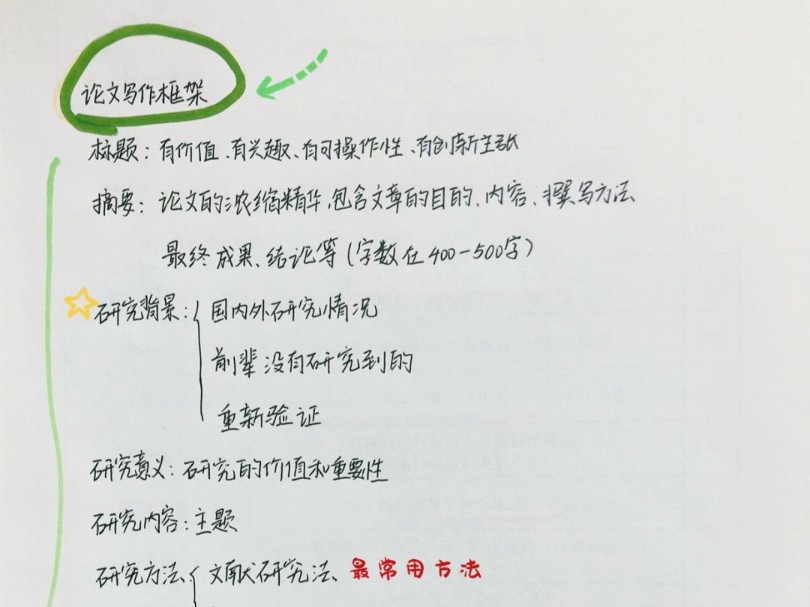 论文写作框架
标题：有价值、有兴趣、有可操作性、有创新主张
摘要：论文的浓缩精华，包含文章的目的、内容、撰写方法
最终成果、结论等（字数在400-500字）
研究背景：国内外研究情况
前辈没有研究到的
重新验证
研究意义：研究的价值和重要性
研究内容：主题
研究方法 文献研究法、最常用方法